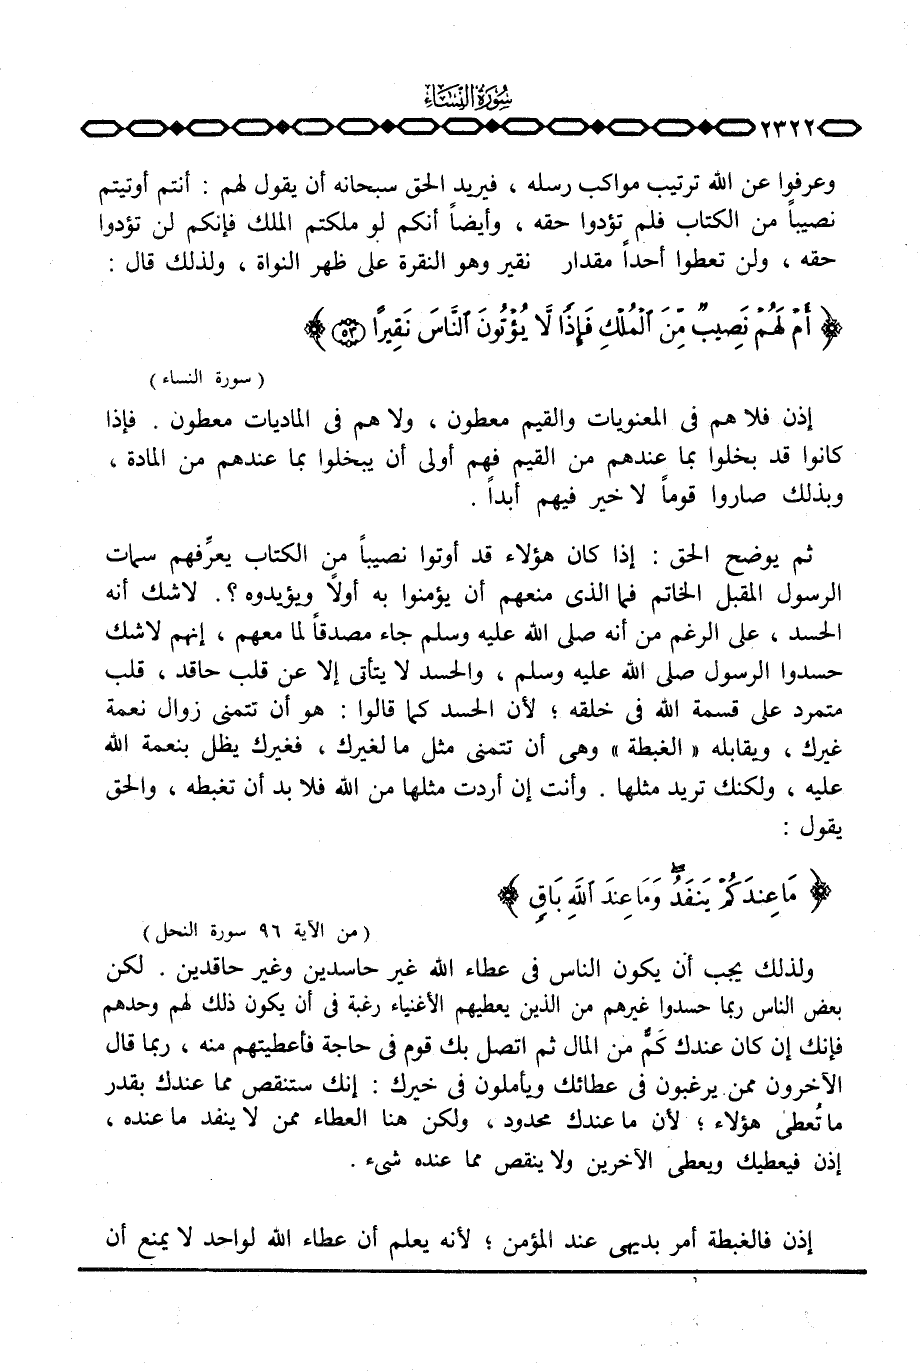 سورة النساء
٢٣٢٢
وعرفوا عن الله ترتيب مواكب رسله ، فيريد الحق سبحانه أن يقول لهم : أنتم أوتيتم
نصيباً من الكتاب فلم تؤدوا حقه ، وأيضاً أنكم لو ملكتم الملك فإنكم لن تؤدوا
حقه ، ولن تعطوا أحداً مقدار نقير وهو النقرة على ظهر النواة ، ولذلك قال :
﴿ أَمْ لَهُمْ نَصِيبٌ مِّنَ ٱلْمُلْكِ فَإِذًا لَّا يُؤْتُونَ ٱلنَّاسَ نَقِيرًا ٥٣ ﴾
( سورة النساء )
إذن فلا هم فى المعنويات والقيم معطون ، ولا هم فى الماديات معطون . فإذا
كانوا قد بخلوا بما عندهم من القيم فهم أولى أن يبخلوا بما عندهم من المادة ،
وبذلك صاروا قوماً لا خير فيهم أبداً .
ثم يوضح الحق : إذا كان هؤلاء قد أوتوا نصيباً من الكتاب يعرِّفهم سمات
الرسول المقبل الخاتم فما الذى منعهم أن يؤمنوا به أولاً ويؤيدوه ؟. لاشك أنه
الحسد ، على الرغم من أنه صلى الله عليه وسلم جاء مصدقاً لما معهم ، إنهم لاشك
حسدوا الرسول صلى الله عليه وسلم ، والحسد لا يتأتى إلا عن قلب حاقد ، قلب
متمرد على قسمة الله فى خلقه ؛ لأن الحسد كما قالوا : هو أن تتمنى زوال نعمة
غيرك ، ويقابله « الغبطة » وهى أن تتمنى مثل ما لغيرك ، فغيرك يظل بنعمة الله
عليه ، ولكنك تريد مثلها . وأنت إن أردت مثلها من الله فلا بد أن تغبطه ، والحق
يقول :
﴿ مَا عِندَكُمْ يَنفَدُ ۖ وَمَا عِندَ ٱللَّهِ بَاقٍ ﴾
( من الآية ٩٦ سورة النحل )
ولذلك يجب أن يكون الناس فى عطاء الله غير حاسدين وغير حاقدين . لكن
بعض الناس ربما حسدوا غيرهم من الذين يعطيهم الأغنياء رغبة فى أن يكون ذلك لهم وحدهم
فإنك إن كان عندك كَمٌّ من المال ثم اتصل بك قوم فى حاجة فأعطيتهم منه ، ربما قال
الآخرون ممن يرغبون فى عطائك ويأملون فى خيرك : إنك ستنقص مما عندك بقدر
ما تُعطى هؤلاء ؛ لأن ما عندك محدود ، ولكن هنا العطاء ممن لا ينفد ما عنده ،
إذن فيعطيك ويعطى الآخرين ولا ينقص مما عنده شىء .
إذن فالغبطة أمر بديهى عند المؤمن ؛ لأنه يعلم أن عطاء الله لواحد لا يمنع أن